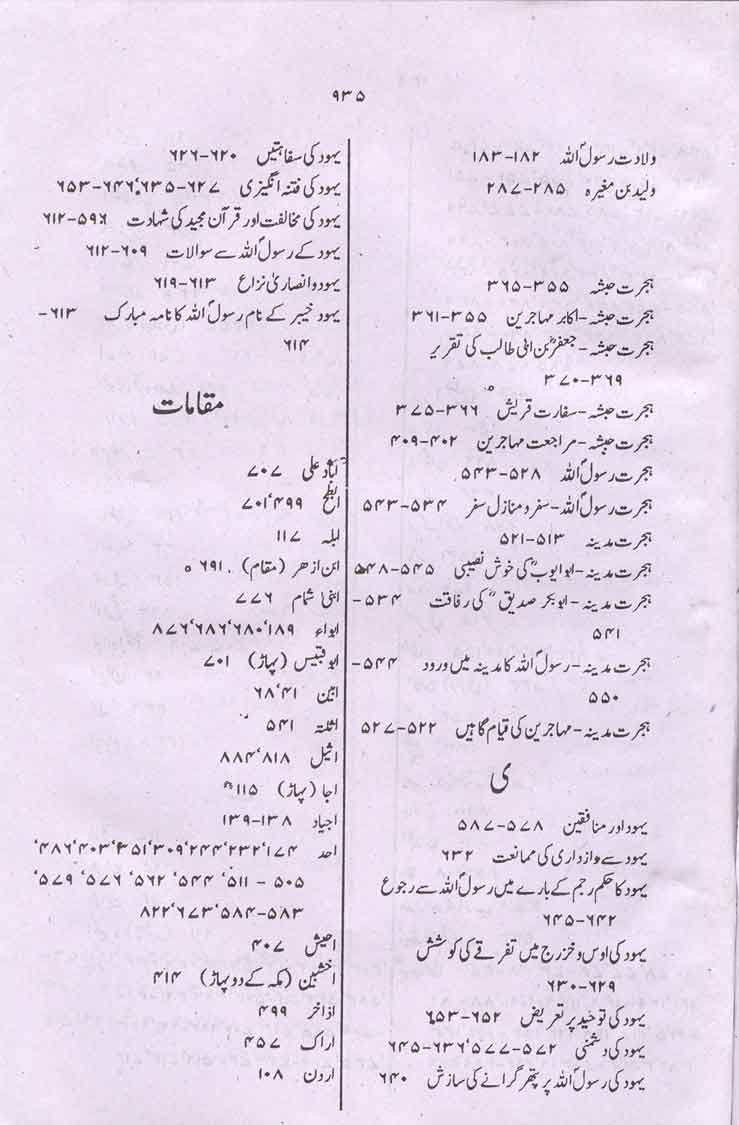 ۹۳۵
ولادت رسولؐ اللہ ۱۸۲-۱۸۳
ولید بن مغیرہ ۲۸۵-۲۸۷
ہجرت حبشہ ۳۵۵-۳۶۵
ہجرت حبشہ-اکابر مہاجرین ۳۵۵-۳۶۱
ہجرت حبشہ-جعفرؓ بن ابی طالب کی تقریر
۳۶۹-۳۷۰
ہجرت حبشہ-سفارت قریش ۳۶۶-۳۷۵
ہجرت حبشہ-مراجعت مہاجرین ۴۰۲-۴۰۹
ہجرت رسولؐ اللہ ۵۲۸-۵۴۳
ہجرت رسولؐ اللہ-سفر و منازل سفر ۵۳۴-۵۴۳
ہجرت مدینہ ۵۱۳-۵۲۱
ہجرت مدینہ-ابو ایوبؓ کی خوش نصیبی ۵۴۵-۵۴۸
ہجرت مدینہ-ابو بکر صدیقؓ کی رفاقت ۵۳۴-
۵۴۱
ہجرت مدینہ-رسولؐ اللہ کا مدینہ میں ورود ۵۴۴-
۵۵۰
ہجرت مدینہ-مہاجرین کی قیام گاہیں ۵۲۲-۵۲۷
ی
یہود اور منافقین ۵۷۸-۵۸۷
یہود سے وازداری کی ممانعت ۶۳۲
یہود کا حکم رجم کے بارے میں رسولؐ اللہ سے رجوع
۶۴۲-۶۴۵
یہود کی اوس و خزرج میں تفرقے کی کوشش
۶۲۹-۶۳۰
یہود کی توحید پر تعریض ۶۵۲-۶۵۳
یہود کی دشمنی ۵۷۲-۵۷۷‘۶۳۶-۶۴۵
یہود کی رسولؐ اللہ پر پتھر گرانے کی سازش ۶۴۰
یہود کی سفاہتیں ۶۲۰-۶۲۶
یہود کی فتنہ انگیزی ۶۲۷-۶۳۵‘۶۴۶-۶۵۳
یہود کی مخالفت اور قرآن مجید کی شہادت ۵۹۶-۶۱۲
یہود کے رسولؐ اللہ سے سوالات ۶۰۹-۶۱۲
یہود و انصاریٰ نزاع ۶۱۳-۶۱۹
یہود خیبر کے نام رسولؐ اللہ کا نامہ مبارک ۶۱۳-
۶۱۴
مقامات
آباد علی ۷۰۷
ابطح ۴۹۹‘۷۰۱
ابلہ ۱۱۷
ابن ازھر (مقام) ۶۹۱
ابنی شام ۷۷۶
ابواء ۱۸۹‘۶۸۰‘۶۸۶‘۸۷۶
ابو قبیس (پہاڑ) ۷۰۱
ابین ۴۱‘۶۸
اثلتہ ۵۴۱
اثیل ۸۱۸‘۸۸۴
اجا (پہاڑ) ۱۱۵
اجیاد ۱۳۸-۱۳۹
احد ۱۷۴‘۲۳۲‘۲۴۴‘۳۰۹‘۳۵۱‘۴۰۳‘۴۸۶‘
۵۰۵ - ۵۱۱‘ ۵۴۴‘ ۵۶۲‘ ۵۷۶‘ ۵۷۹‘
۵۸۳-۵۸۴‘۶۷۳‘۸۲۲
احیش ۴۰۷
اخشبین (مکہ کے دو پہاڑ) ۴۱۴
اذاخر ۴۹۹
اراک ۴۵۷
اردن ۱۰۸